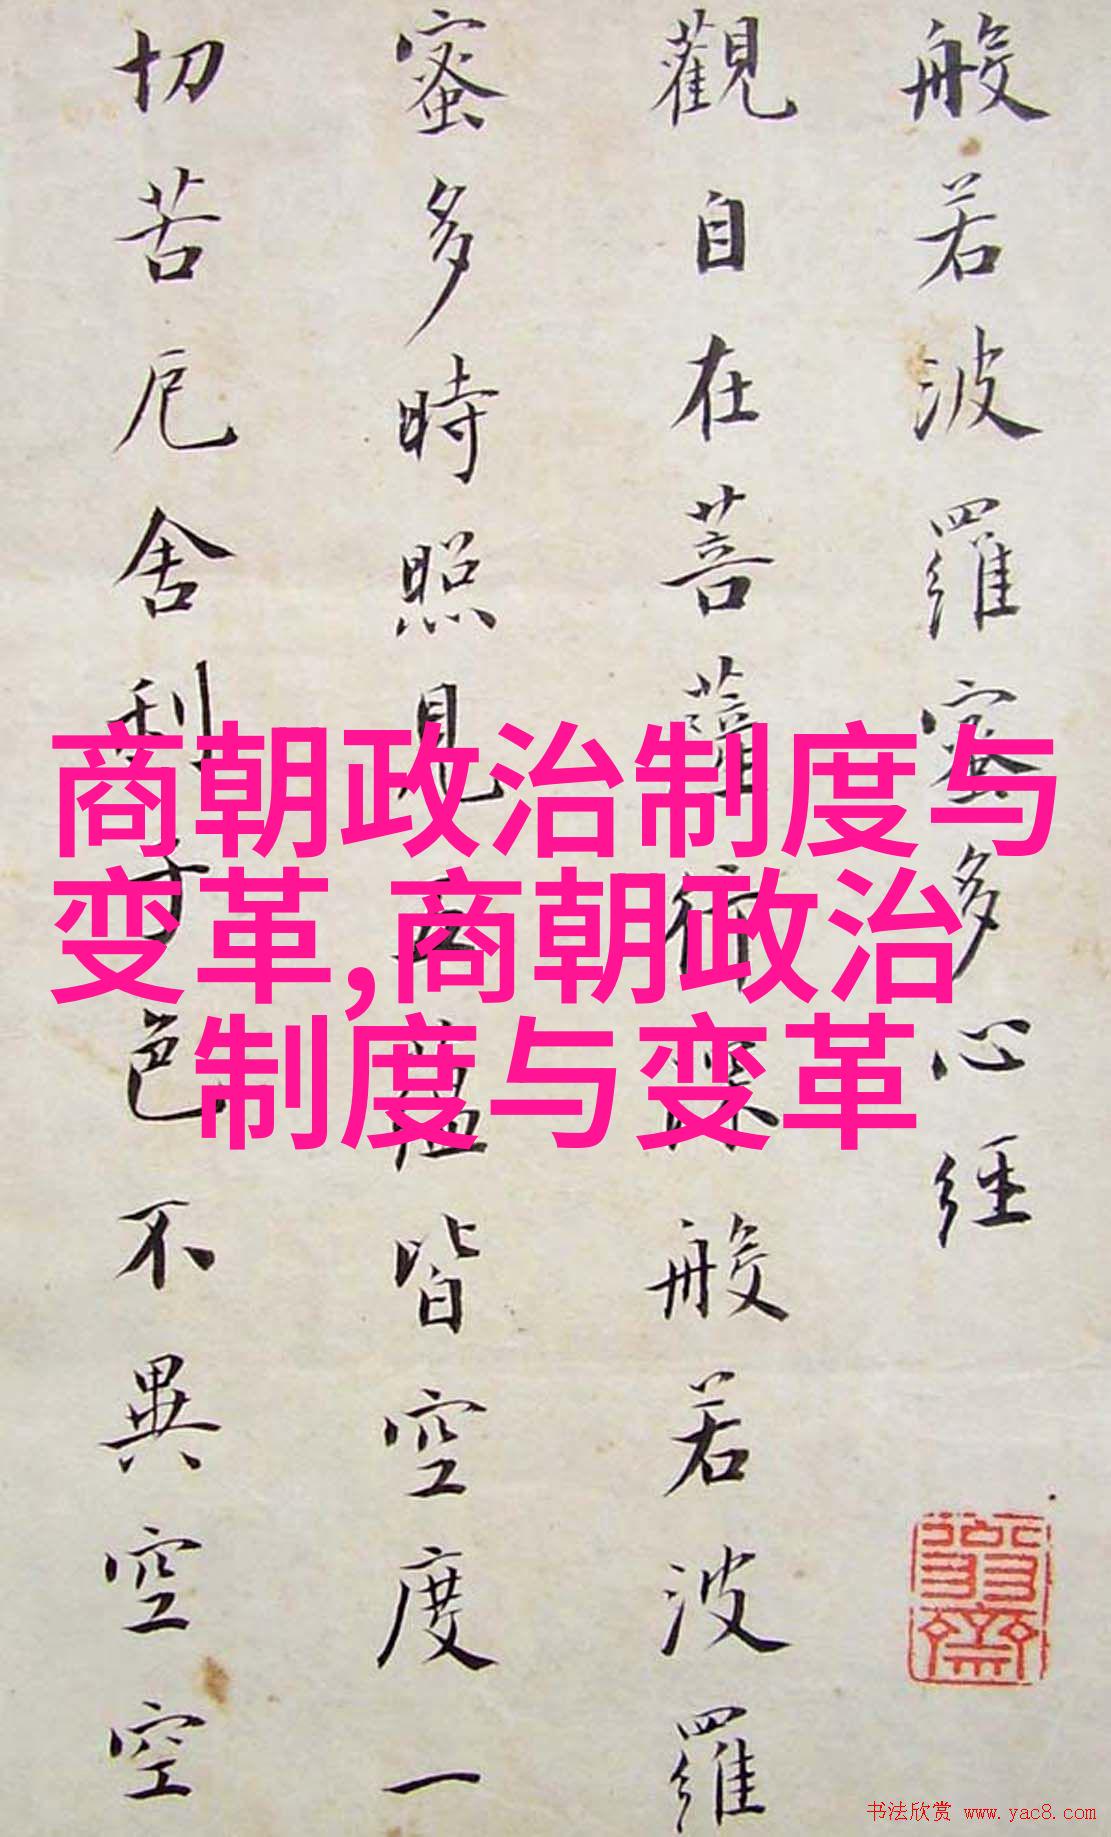 般若波羅蜜多心經
觀自在菩薩行深般若波羅
蜜多時照見五蘊皆空度一
切苦厄舍利子色不異空空
商朝政治制度与
变革,商朝政治
制度与变革
书法欣赏 www.yac8.com